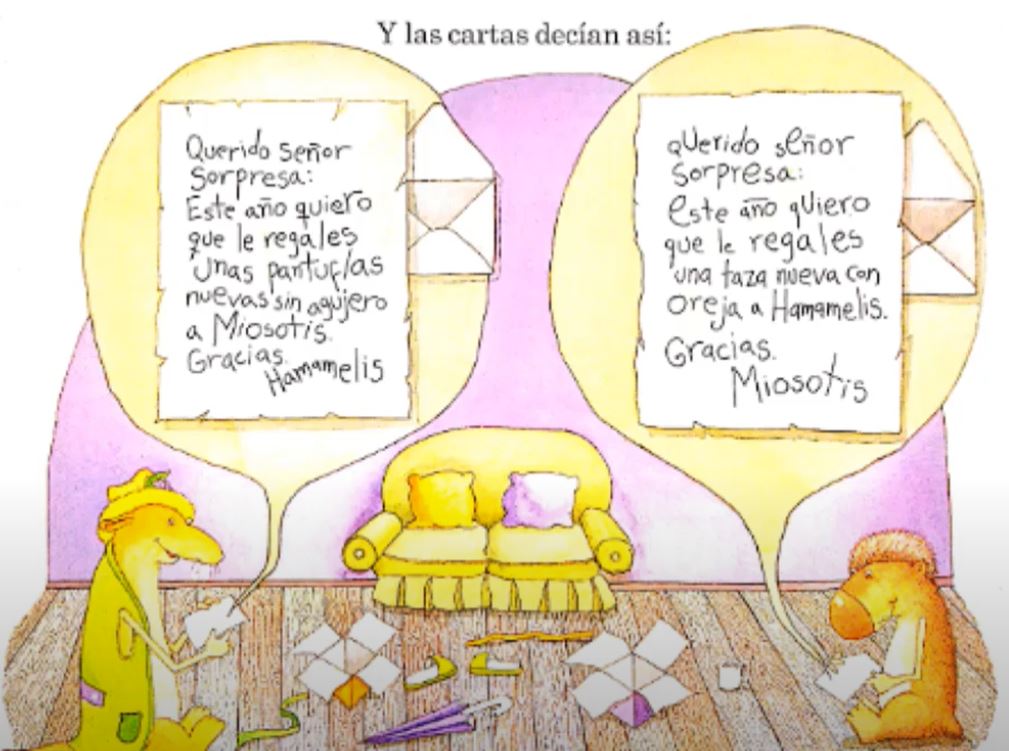 Y las cartas decían así:
Querido Señor
Sorpresa:
Este año quiero
que le regales
unas pantuflas
nuevas sin agujero
a Miosotis.
Gracias.
Hamamelis
qUerido sEñor
SorpResa:
este año qUiero
que le regales
una taza nueva con
oreja a Hamamelis.
Gracias.
Miosotis